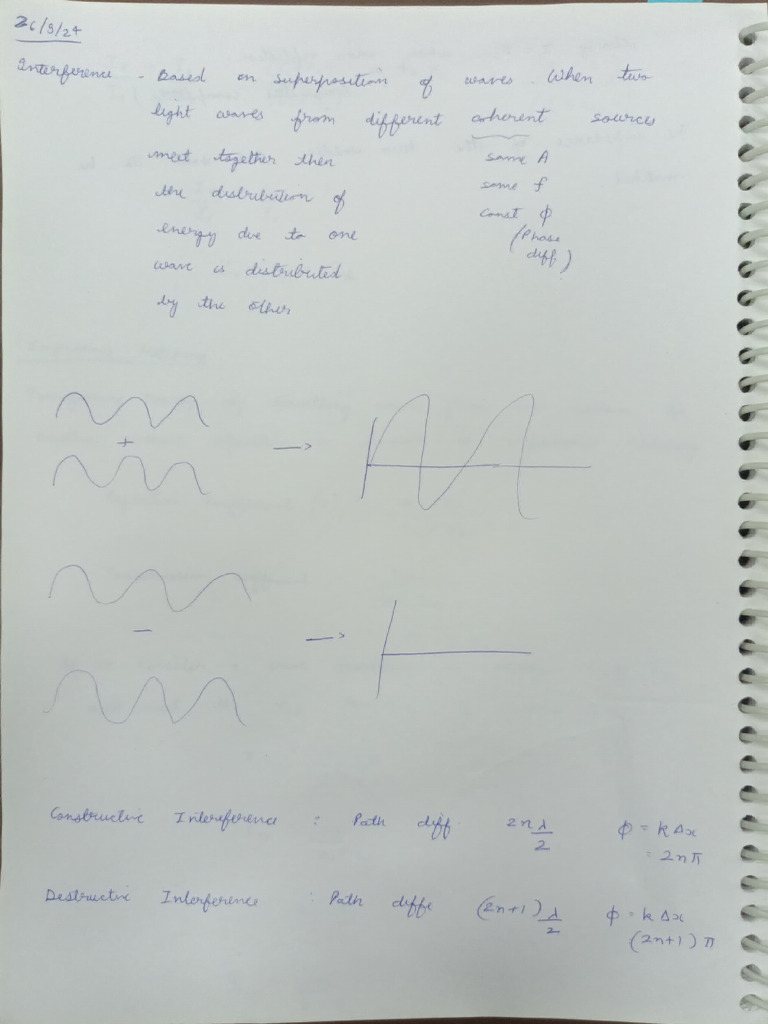 26/9/24
Interference - Based on superposition of waves. When two
light waves from different coherent sources
meet together then same A
the distribution of same f
energy due to one const ϕ
wave is distributed (Phase diff.)
by the other
+ →
- →
Constructive Intereference : Path diff 2n λ/2 ϕ = k Δx
= 2nπ
Destructive Interference : Path diffe (2n+1) λ/2 ϕ = k Δx
(2n+1) π